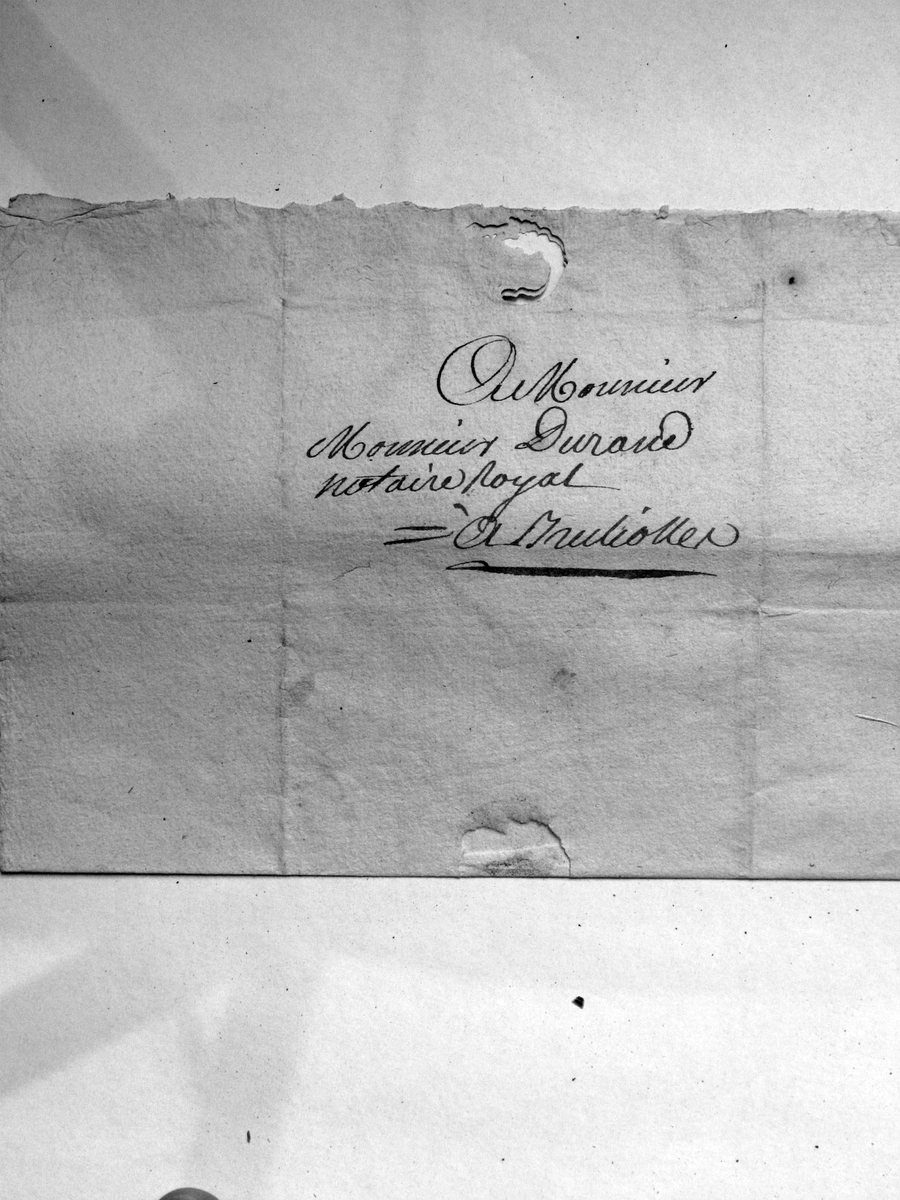 A Monsieur
Monsieur Durand
notaire Royal
= à Bruliolles